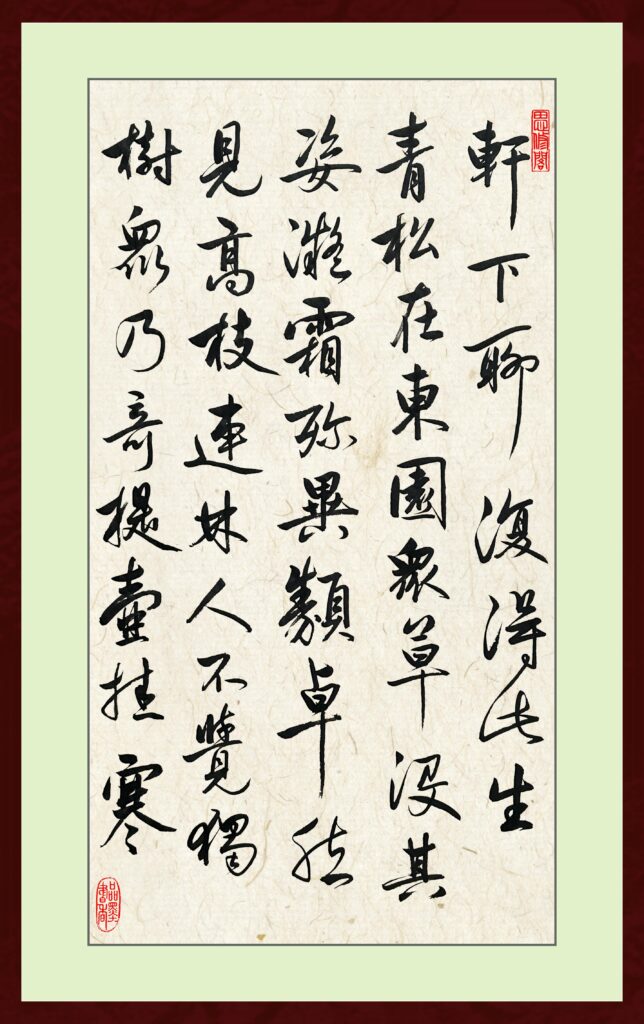 思修閣
軒下聊復得此生
青松在東園眾草没其
姿凝霜殄異類卓然
見高枝連林人不覺獨
樹眾乃奇提壺挂寒